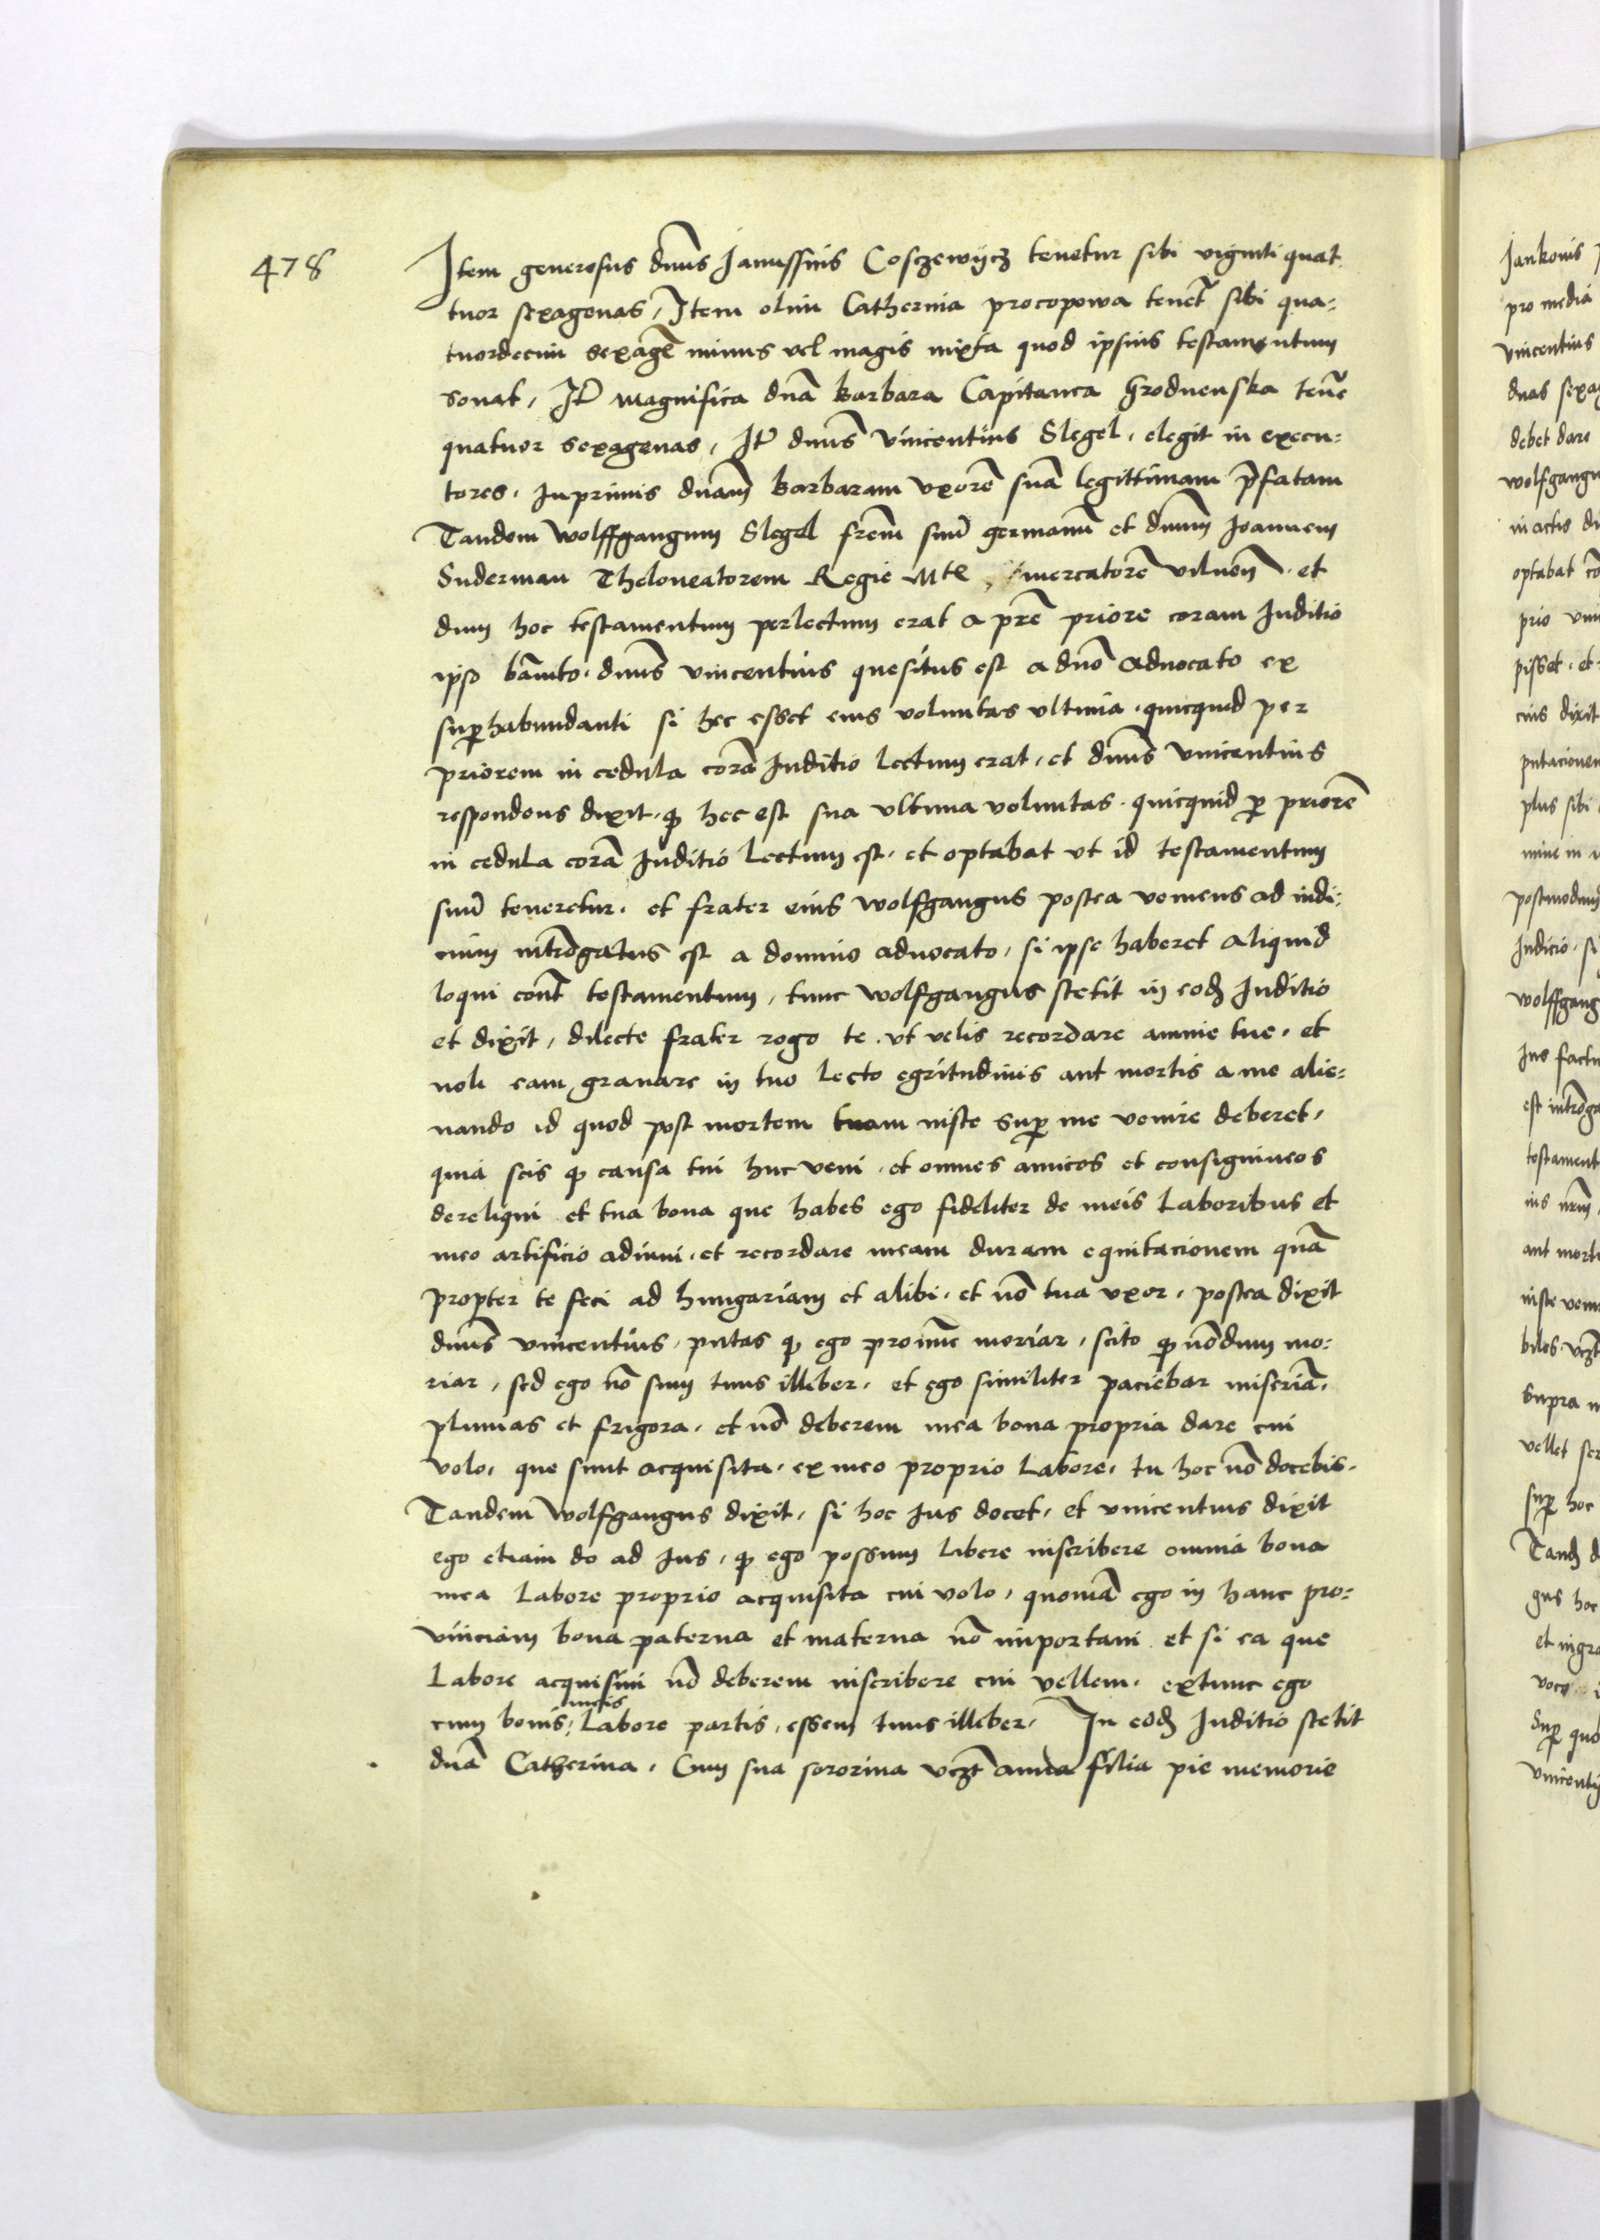 478
Item generosus dnus Janussius Cosczewycz tenetur sibi viginti quat
tuor sexagenas, Item olim Catherina procopowa tenet sibi qua-
tuordecim sexage minus vel magis iuxta quod ipsius testamentum
sonat, Ite magnifica dna Barbara Capitanea Grodnenska tene
quatuor sexagenas, Ite dnus Vincentius Slegel, elegit in execu-
tores, Inprimis dnam Barbaram uxore sua legittimam pfatam
Tandem Wolffgangum Slegel frem suu germanu et dnum Joannem
Suderman Theloneatorem Regie Mte, mercatore vilnen, et
dum hoc testamentum perlectum erat a pre priore coram Juditio
ipso banito, dnus vincentius quesitus est a dno advocato ex
suphabundanti si hec esset eius voluntas ultima, quicquid per
priorem in cedula cora Juditio lectum erat, et dnus Vincentius
respondens dixit, q hec est sua ultima voluntas, quicquid p priore
in cedula cora Juditio lectum est, et optabat ut id testamentum
suu teneretur, et frater eius wolfgangus postea veniens ad iudi-
cium introgatus est a domino advocato, si ipse haberet aliquid
loqui cont testamentum, tunc wolfgangus stetit in eod Juditio
et dixit, dilecte frater rogo te, ut velis recordare anime tue, et
noli eam gravare in tuo lecto egritudinis aut mortis a me alie-
nando id quod post mortem tuam iuste sup me venire deberet,
quia scis q causa tui huc veni, et omnes amicos et consignineos
dereliqui et tua bona que habes ego fideliter de meis laboribus et
meo artificio adiuvi, et recordare meam duram equitacionem qua
propter te feci ad hungariam et alibi, et no tua uxor, postea dixit
dnus vincentius, putas q ego pronuc moriar, scito q nodum mo-
riar, sed ego no sum tuus illiber, et ego similiter paciebar miseria,
pluvias et frigora, et no deberem mea bona propria dare cui
volo, que sunt acquisita, ex meo proprio labore, tu hoc no docebis,
Tandem Wolfgangus dixit, si hoc Jus docet, et vincentius dixit
ego etiam do ad Jus, q ego possum libere inscribere omnia bona
mea labore proprio acquisita cui volo, quonia ego in hanc pro-
vinciam bona paterna et materna no importavi et si ea que
labore acquisivi no deberem inscribere cui vellem, extunc ego
meis
cum bonis, labore partis, essem tuus illiber, In eod Juditio stetit
dna Catherina, Cum sua sororina vczt anna filia pie memorie
Jankonis
pro media
vincentius
duas sexag
debet dare
wolfgangu
in actis
optabat co
prio
pisset, et
eius dixit
putacionem
plus sibi
postmodum
Judicio, si
wolffgang
Jus factu
est introga
testament
aut morti
iuste veni
biles vczt
Supra
vellet
sup hoc
Tand
gus hoc
et ingra
voce
Sup quo
vincenti